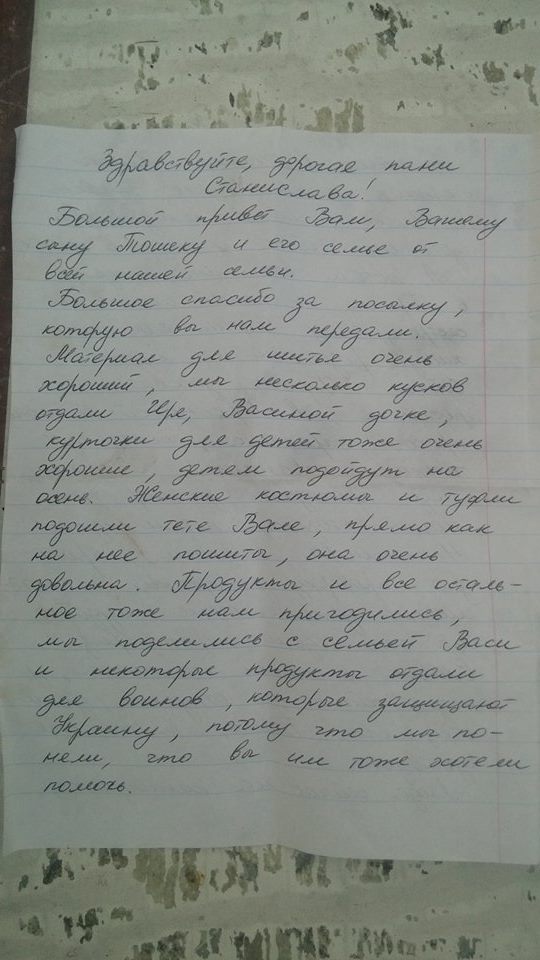 Здравствуйте, дорогая пани
Станислава!
Большой привет Вам, Вашему
сыну Тошеку и его семье от
всей нашей семьи.
Большое спасибо за посылку,
которую вы нам передали.
Материал для шитья очень
хороший, мы несколько кусков
отдали Ире, Васиной дочке,
курточки для детей тоже очень
хорошие, детям подойдут на
осень. Женские костюмы и туфли
подошли тете Вале, прямо как
на нее пошиты, она очень
довольна. Продукты и все осталь-
ное тоже нам пригодились,
мы поделились с семьей Васи
и некоторые продукты отдали
для воинов, которые защищают
Украину, потому что мы по-
няли, что вы им тоже хотели
помочь.